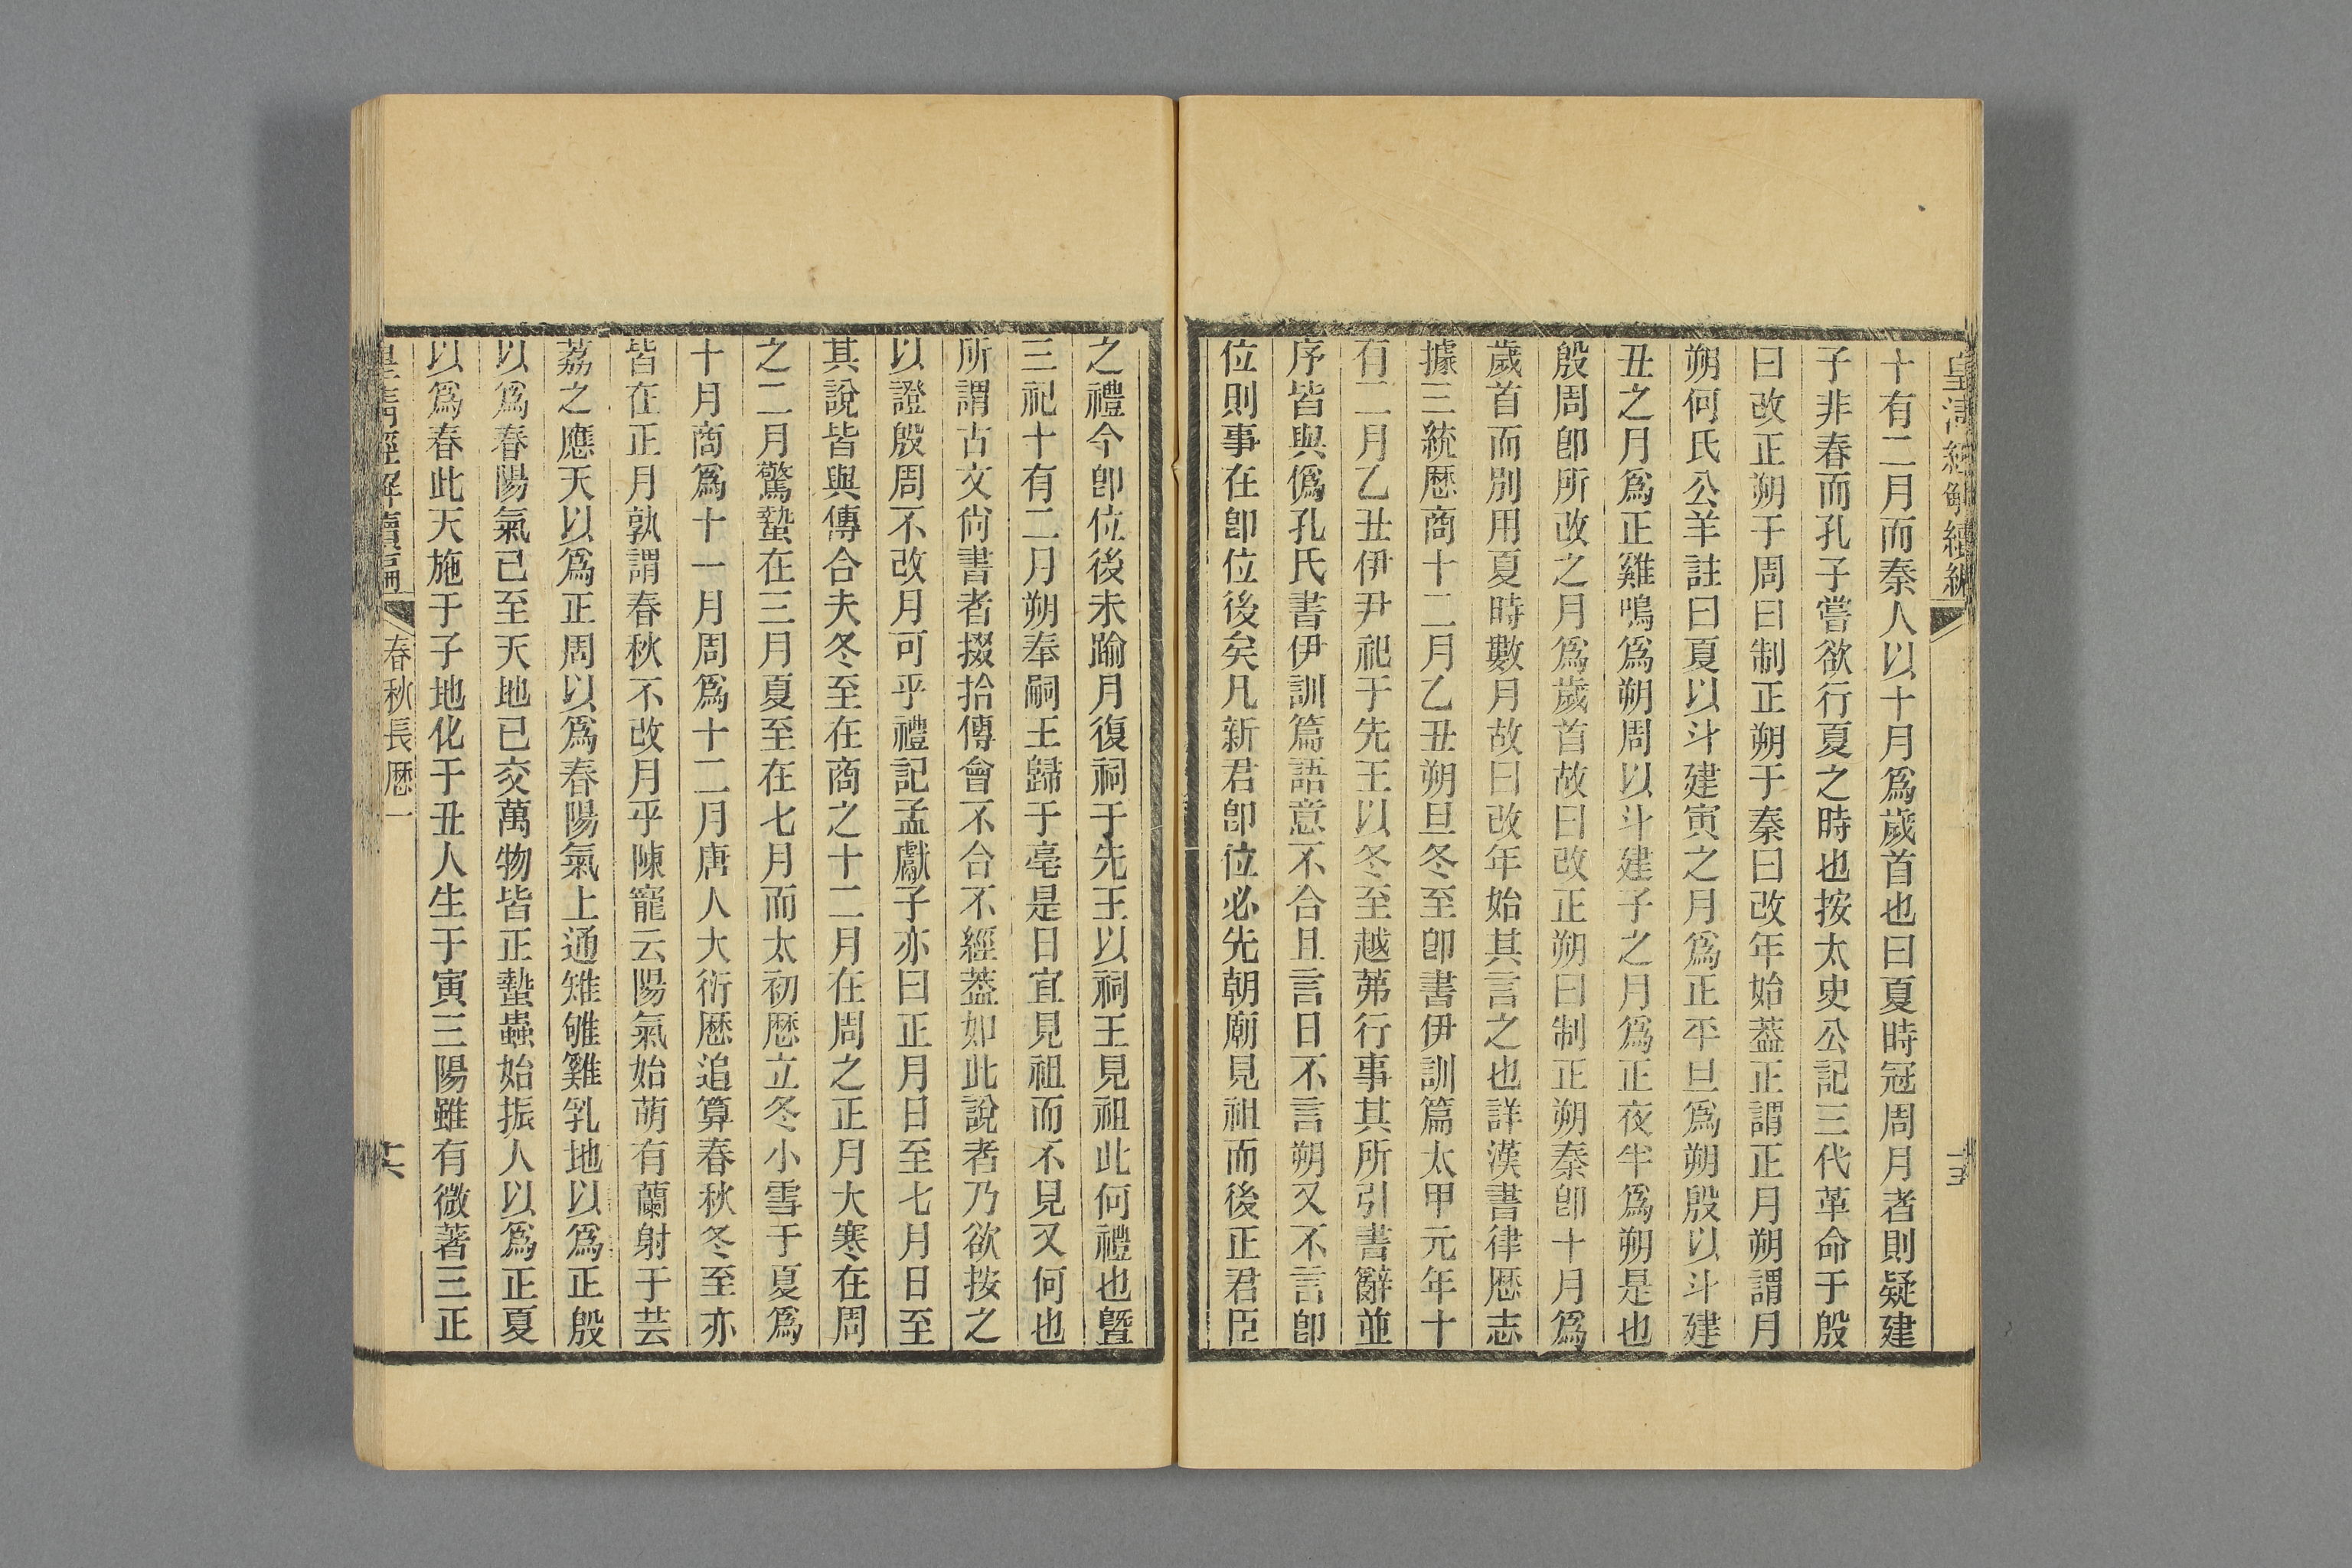 皇清經解續編
十有二月而秦人以十月爲歲首也曰夏時冠周月者則疑建
子非春而孔子嘗欲行夏之時也按太史公記三代革命于殷
曰改正朔于周曰制正朔于秦曰改年始葢正謂正月朔謂月
朔何氏公羊註曰夏以斗建寅之月爲正平旦爲朔殷以斗建
丑之月爲正雞鳴爲朔周以斗建子之月爲正夜半爲朔是也
殷周卽所改之月爲歲首故曰改正朔曰制正朔秦卽十月爲
歲首而別用夏時數月故曰改年始其言之也詳漢書律厯志
據三統厯商十二月乙丑朔旦冬至卽書伊訓篇太甲元年十
有二月乙丑伊尹祀于先王以冬至越茀行事其所引書辭並
序皆與僞孔氏書伊訓篇語意不合且言日不言朔又不言卽
位則事在卽位後矣凡新君卽位必先朝廟見祖而後正君臣
之禮今卽位後未踰月復祠于先王以祠王見祖此何禮也曁
三祀十有二月朔奉嗣王歸于亳是日宜見祖而不見又何也
所謂古文尙書者掇拾傳會不合不經葢如此說者乃欲按之
以證殷周不改月可乎禮記孟獻子亦曰正月日至七月日至
其說皆與傳合夫冬至在商之十二月在周之正月大寒在周
之二月驚蟄在三月夏至在七月而太初厯立冬小雪于夏爲
十月商爲十一月周爲十二月唐人大衍厯追算春秋冬至亦
皆在正月孰謂春秋不改月乎陳寵云陽氣始萌有蘭射于芸
荔之應天以爲正周以爲春陽氣上通雉雊雞乳地以爲正殷
以爲春陽氣已至天地已交萬物皆正蟄蟲始振人以爲正夏
以爲春此天施于子地化于丑人生于寅三陽雖有微著三正
皇淸經解續編 春秋長厯一